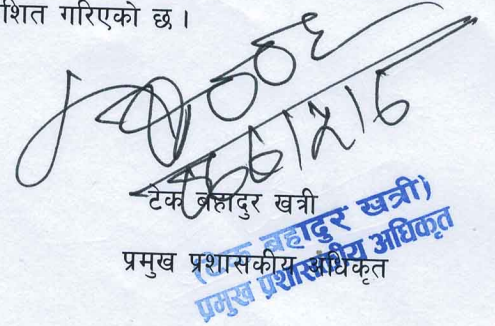 शित गरिएको छ ।
टेक बहादुर खत्री
प्रमुख प्रशासकीय अधिकृत
बहादुर खत्री)
प्रमुख प्रशासकीय अधिकृत